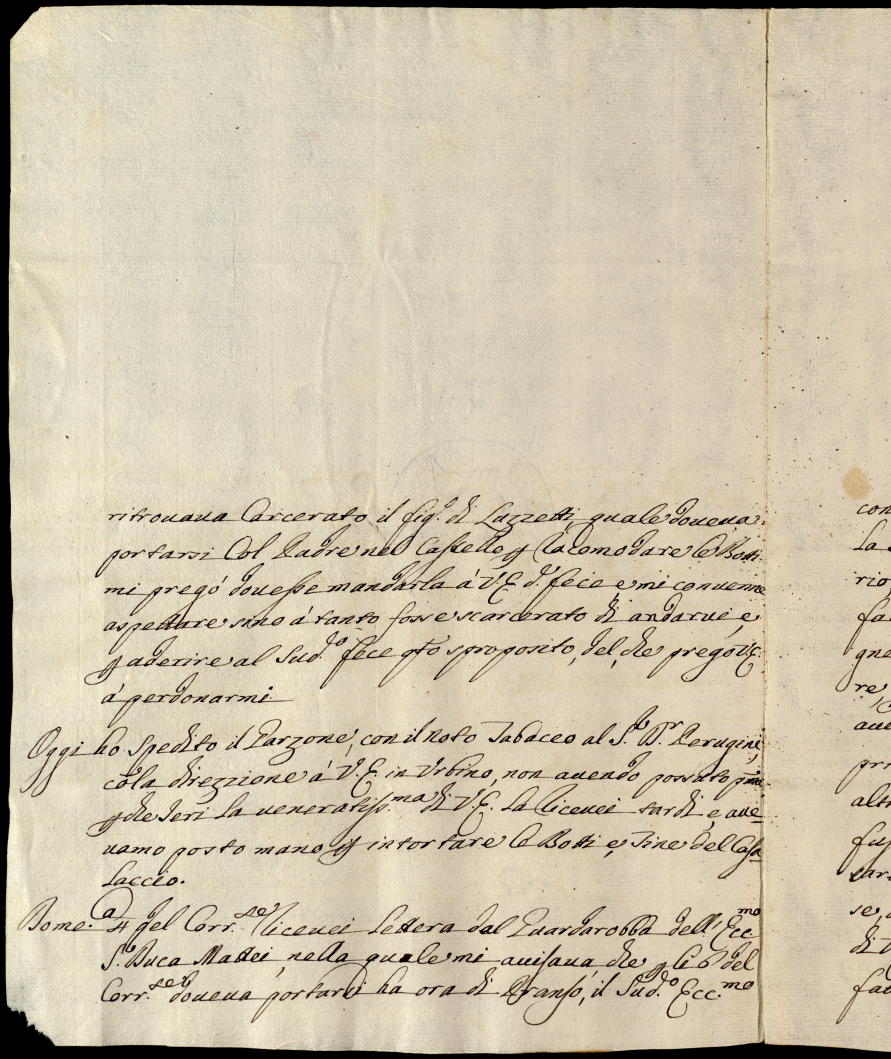 ritrouaua Carcerato il fig.º di Luzzetti, quale doueua
portarsi Col Padre nel Castello p racomodare le Botti
mi pregó douesse mandarla á V.E. d.º fece e mi conuenne
aspettare sino á tanto fosse scarcerato di andarui e,
p aderire al Sud.º fece qto sproposito, del, che prego V.E.
á perdonarmi
Oggi ho Spedito il Garzone, con il noto Tabacco al S.r D.r Perugini,
cóla direzzione á V.E. in Urbino, non auendo possuto pma
p che Ieri la ueneratiss.ma di V.E. la riceuei tardi, e aue=
uamo posto mano p intortare le Botti e, Tine del Casa
laccio.
A 4 del Corr.se riceuei Lettera dal Guardarobba dell'Ecc.mo
S.r Duca Mattei, nella quale mi auisaua, che p li 6 del
Corr.se doueua portarsi ha ora di Pranso, il Sud.º Ecc.mo
con
La
rio
fa
gne
re
aue
pri
altr
fus
sar
se,
di
fa